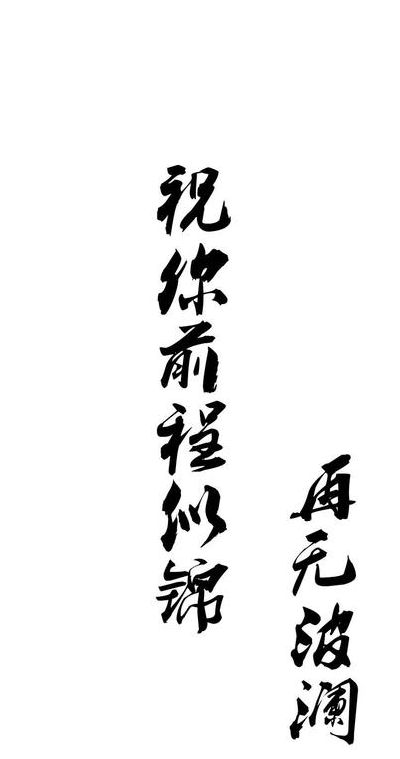 祝你前程似锦
再无波澜